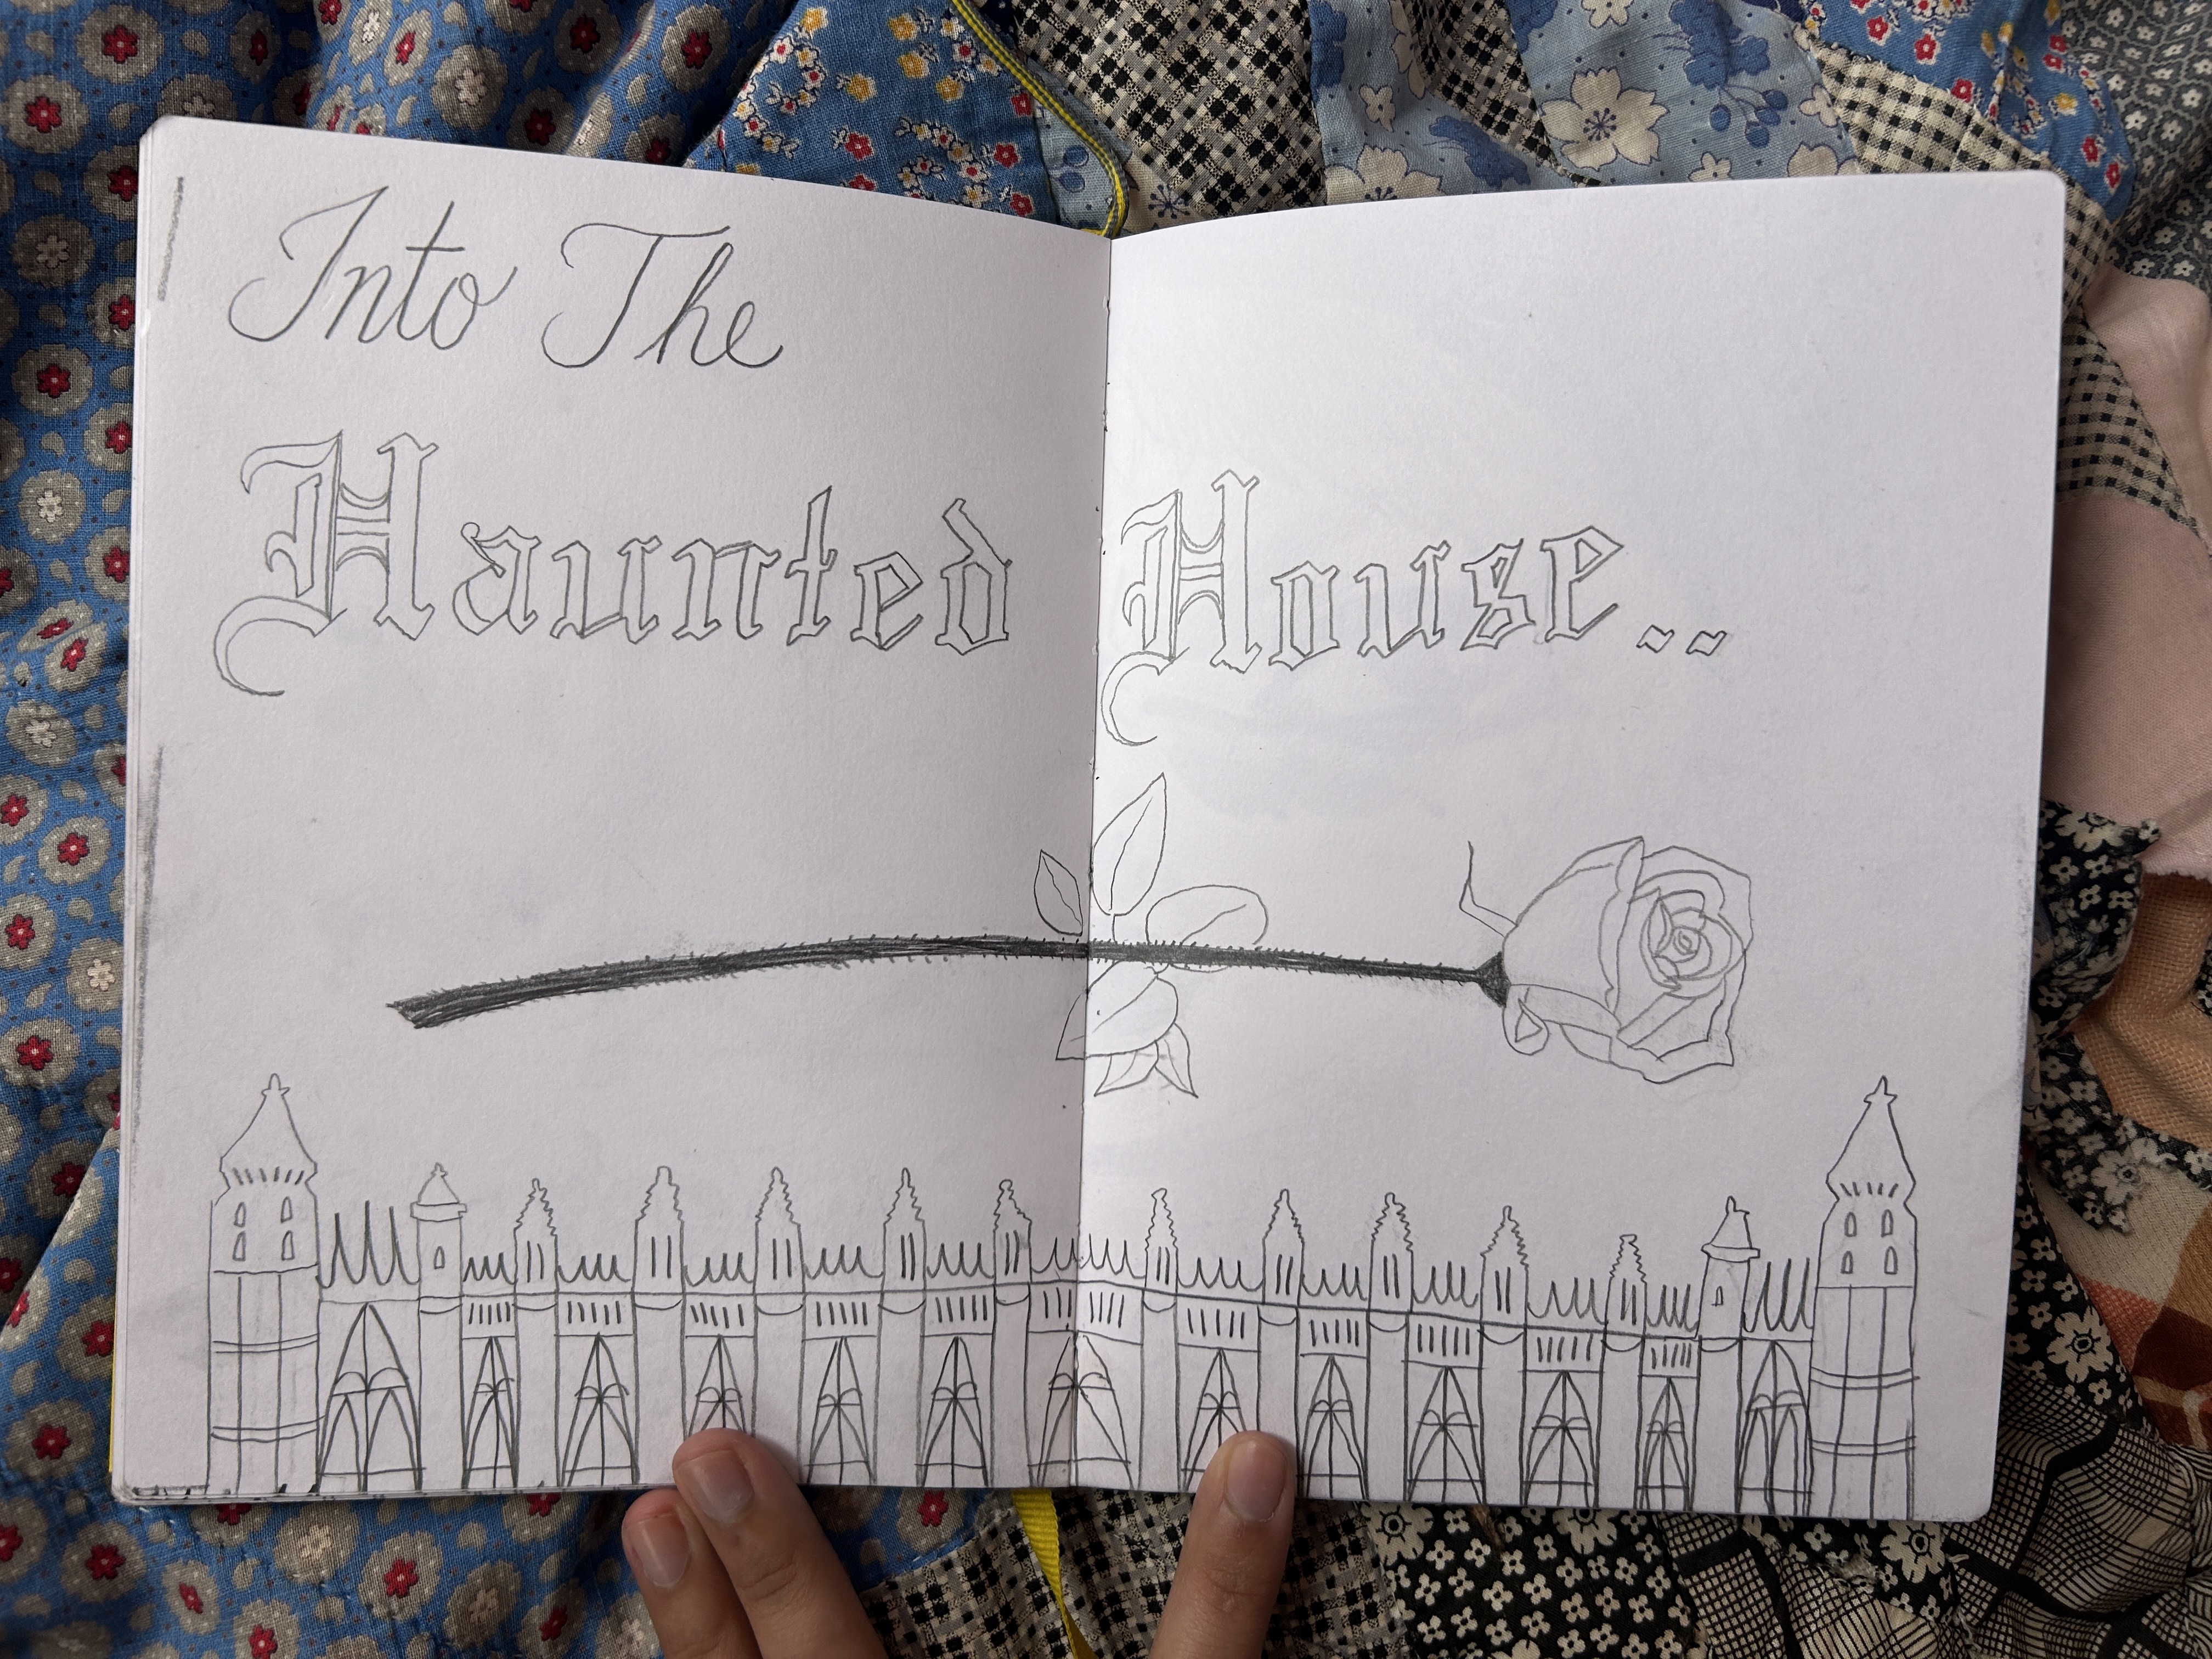 Into The
Haunted House..